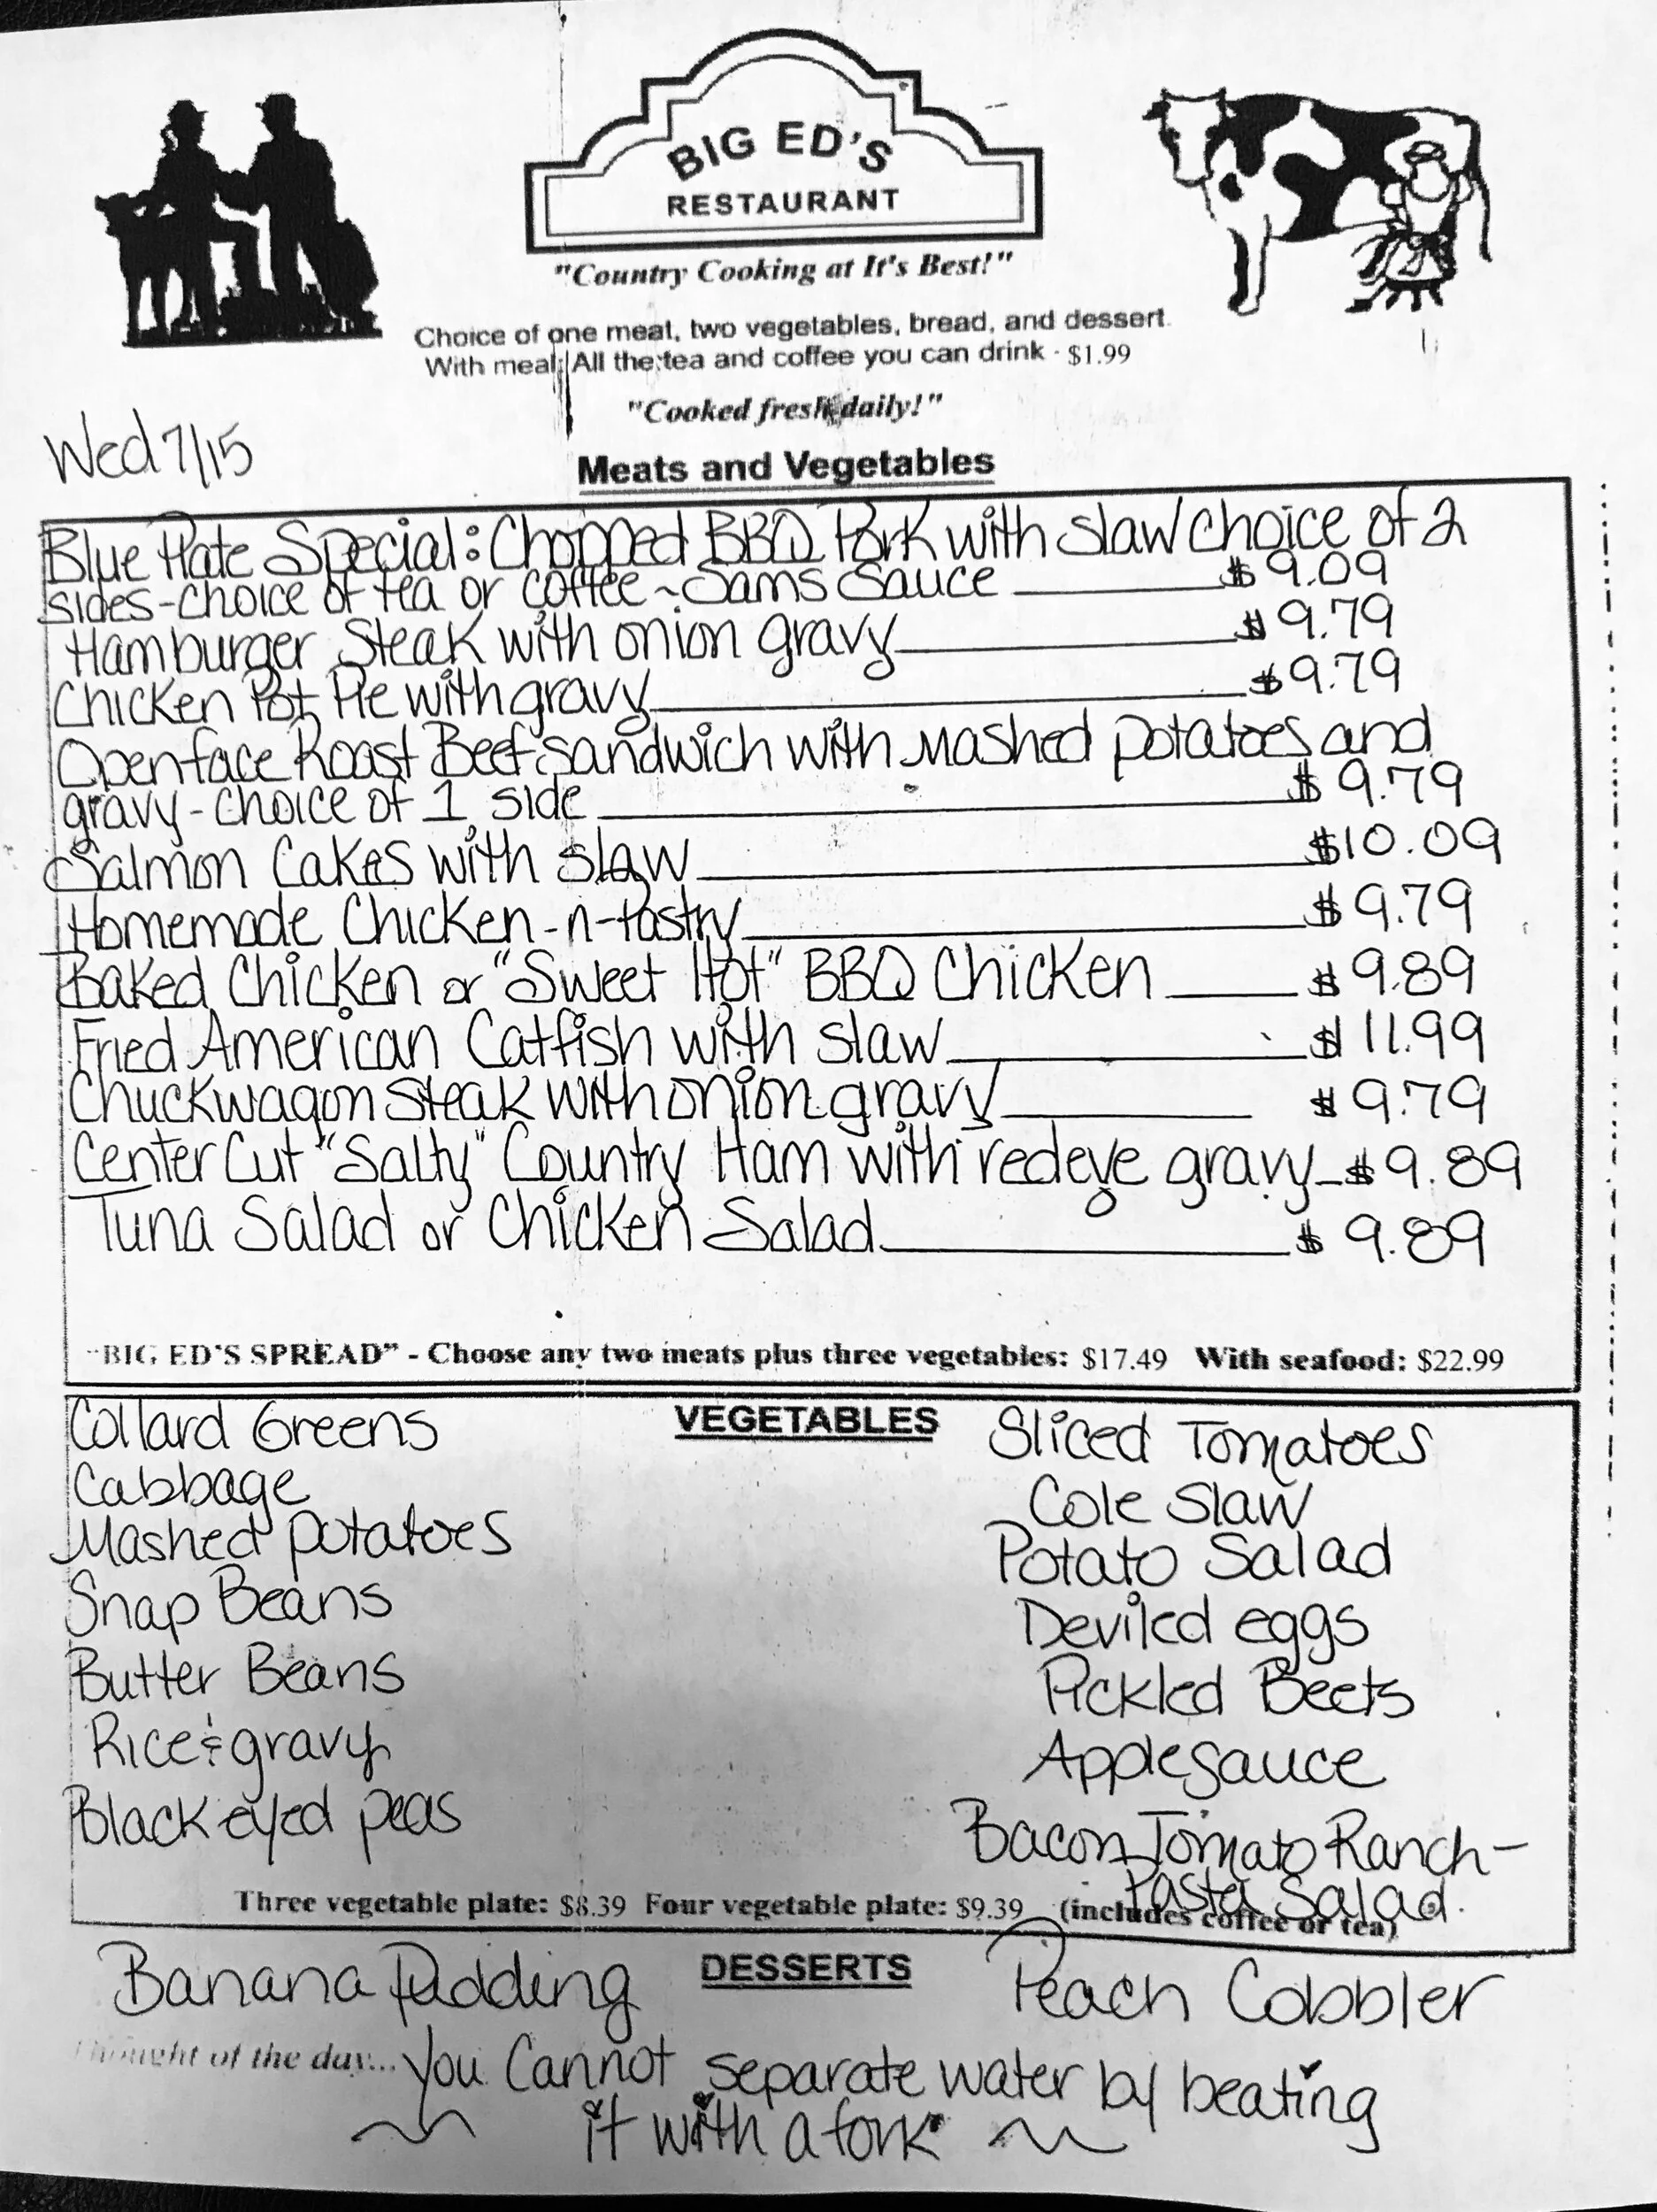 BIG ED'S
RESTAURANT
"Country Cooking at It's Best!"
Choice of one meat, two vegetables, bread, and dessert.
With meal: All the tea and coffee you can drink - $1.99
"Cooked fresh daily!"
Wed 7/15
Meats and Vegetables
Blue Plate Special: Chopped BBQ Pork with slaw choice of 2
sides-choice of tea or coffee ~ Sams Sauce $9.09
Hamburger Steak with onion gravy $9.79
Chicken Pot Pie with gravy $9.79
Openface Roast Beef sandwich with mashed potatoes and
gravy - choice of 1 side $9.79
Salmon Cakes with slaw $10.09
Homemade Chicken-n-Pastry $9.79
Baked Chicken or "Sweet Hot" BBQ Chicken $9.89
Fried American Catfish with slaw $11.99
Chuckwagon Steak with onion gravy $9.79
Center Cut "Salty" Country Ham with redeye gravy - $9.89
Tuna Salad or Chicken Salad $9.89
"BIG ED'S SPREAD" - Choose any two meats plus three vegetables: $17.49 With seafood: $22.99
VEGETABLES
Collard Greens
Cabbage
Mashed potatoes
Snap Beans
Butter Beans
Rice & gravy
Black eyed peas
Sliced Tomatoes
Cole Slaw
Potato Salad
Deviled eggs
Pickled Beets
Applesauce
Bacon Tomato Ranch -
Pasta Salad.
Three vegetable plate: $8.39 Four vegetable plate: $9.39 (includes coffee or tea)
DESSERTS
Banana Pudding
Peach Cobbler
Thought of the day... You Cannot separate water by beating
it with a fork